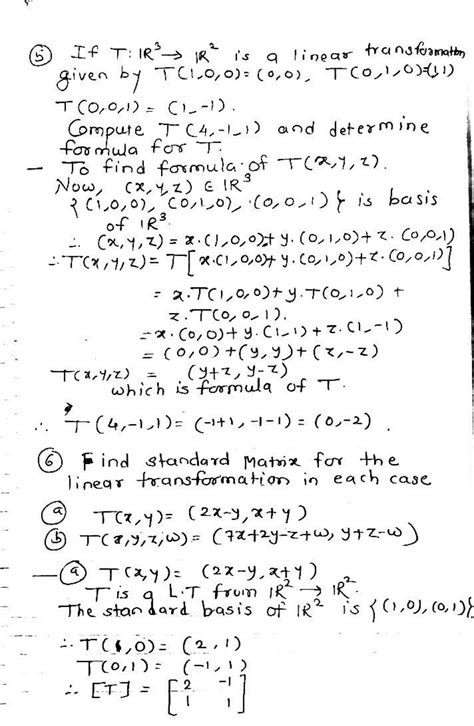 ⑤ If T: IR³ → IR² is a linear transformation
given by T(1,0,0) = (0,0), T(0,1,0)=(1,1)
T(0,0,1) = (1,-1).
Compute T(4,-1,1) and determine
formula for T.
— To find formula of T(x,y,z).
Now, (x,y,z) ∈ IR³
{(1,0,0), (0,1,0), (0,0,1)} is basis
of IR³.
∴ (x,y,z) = x.(1,0,0)+ y.(0,1,0)+z.(0,0,1)
∴ T(x,y,z) = T[x.(1,0,0)+ y.(0,1,0)+z.(0,0,1)]
= x.T(1,0,0)+y.T(0,1,0) +
z.T(0,0,1).
= x.(0,0)+y.(1,1)+z.(1,-1)
= (0,0)+(y,y)+(z,-z)
T(x,y,z) = (y+z, y-z)
which is formula of T.
∴ T(4,-1,1) = (-1+1, -1-1) = (0,-2).
⑥ Find standard Matrix for the
linear transformation in each case
ⓐ T(x,y) = (2x-y, x+y)
ⓑ T(x,y,z,w) = (7x+2y-z+w, y+z-w)
— ⓐ T(x,y) = (2x-y, x+y)
T is a L.T from IR² → IR².
The standard basis of IR² is {(1,0),(0,1)}
∴ T(1,0) = (2,1)
T(0,1) = (-1,1)
∴ [T] = [2 -1
1 1]